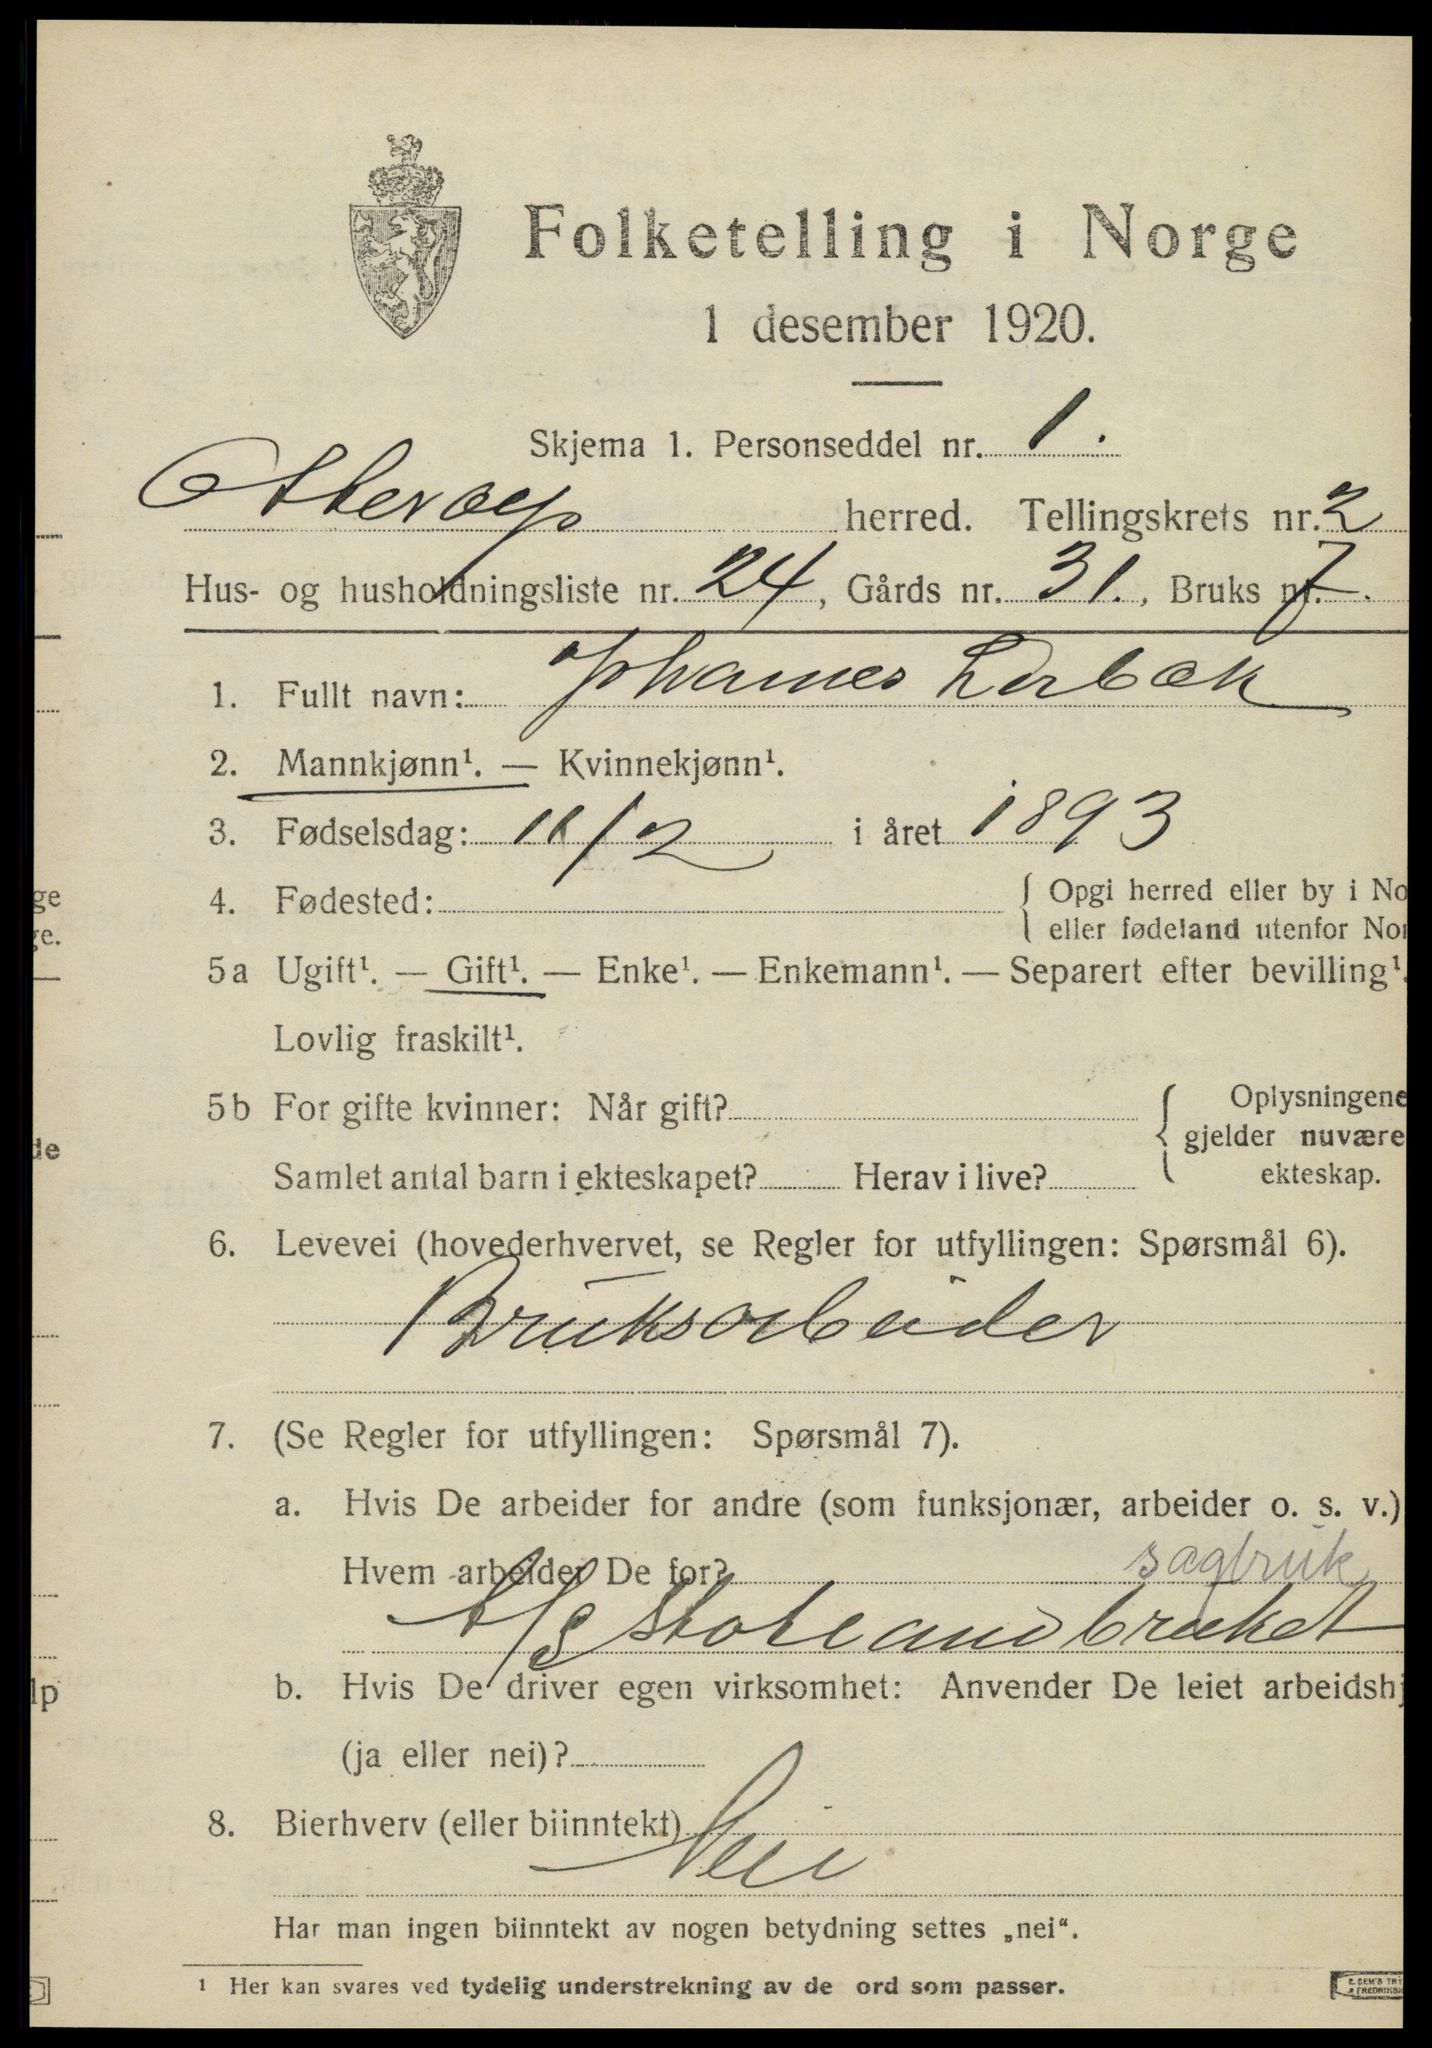 Folketelling i Norge
1 desember 1920.
Skjema 1. Personseddel nr. 1.
Otterøy herred. Tellingskrets nr. 2
Hus- og husholdningsliste nr. 24, Gårds nr. 31., Bruks nr. 7.
1. Fullt navn: Johannes Lerbæk
2. Mannkjønn¹. — Kvinnekjønn¹.
3. Fødselsdag: 11/2 i året 1893
4. Fødested: { Opgi herred eller by i No
eller fødeland utenfor Nor
5a Ugift¹. — Gift¹. — Enke¹. — Enkemann¹. — Separert efter bevilling¹.
Lovlig fraskilt¹.
5b For gifte kvinner: Når gift? { Oplysningene
gjelder nuvære
Samlet antal barn i ekteskapet? Herav i live? ekteskap.
6. Levevei (hovederhvervet, se Regler for utfyllingen: Spørsmål 6).
Bruksarbeider
7. (Se Regler for utfyllingen: Spørsmål 7).
a. Hvis De arbeider for andre (som funksjonær, arbeider o. s. v.)
Hvem arbeider De for? sagbruk
A/S bruket
b. Hvis De driver egen virksomhet: Anvender De leiet arbeidshj
(ja eller nei)?
8. Bierhverv (eller biinntekt) Nei
Har man ingen biinntekt av nogen betydning settes „nei“.
¹ Her kan svares ved tydelig understrekning av de ord som passer.
ge
ge.
de
lp